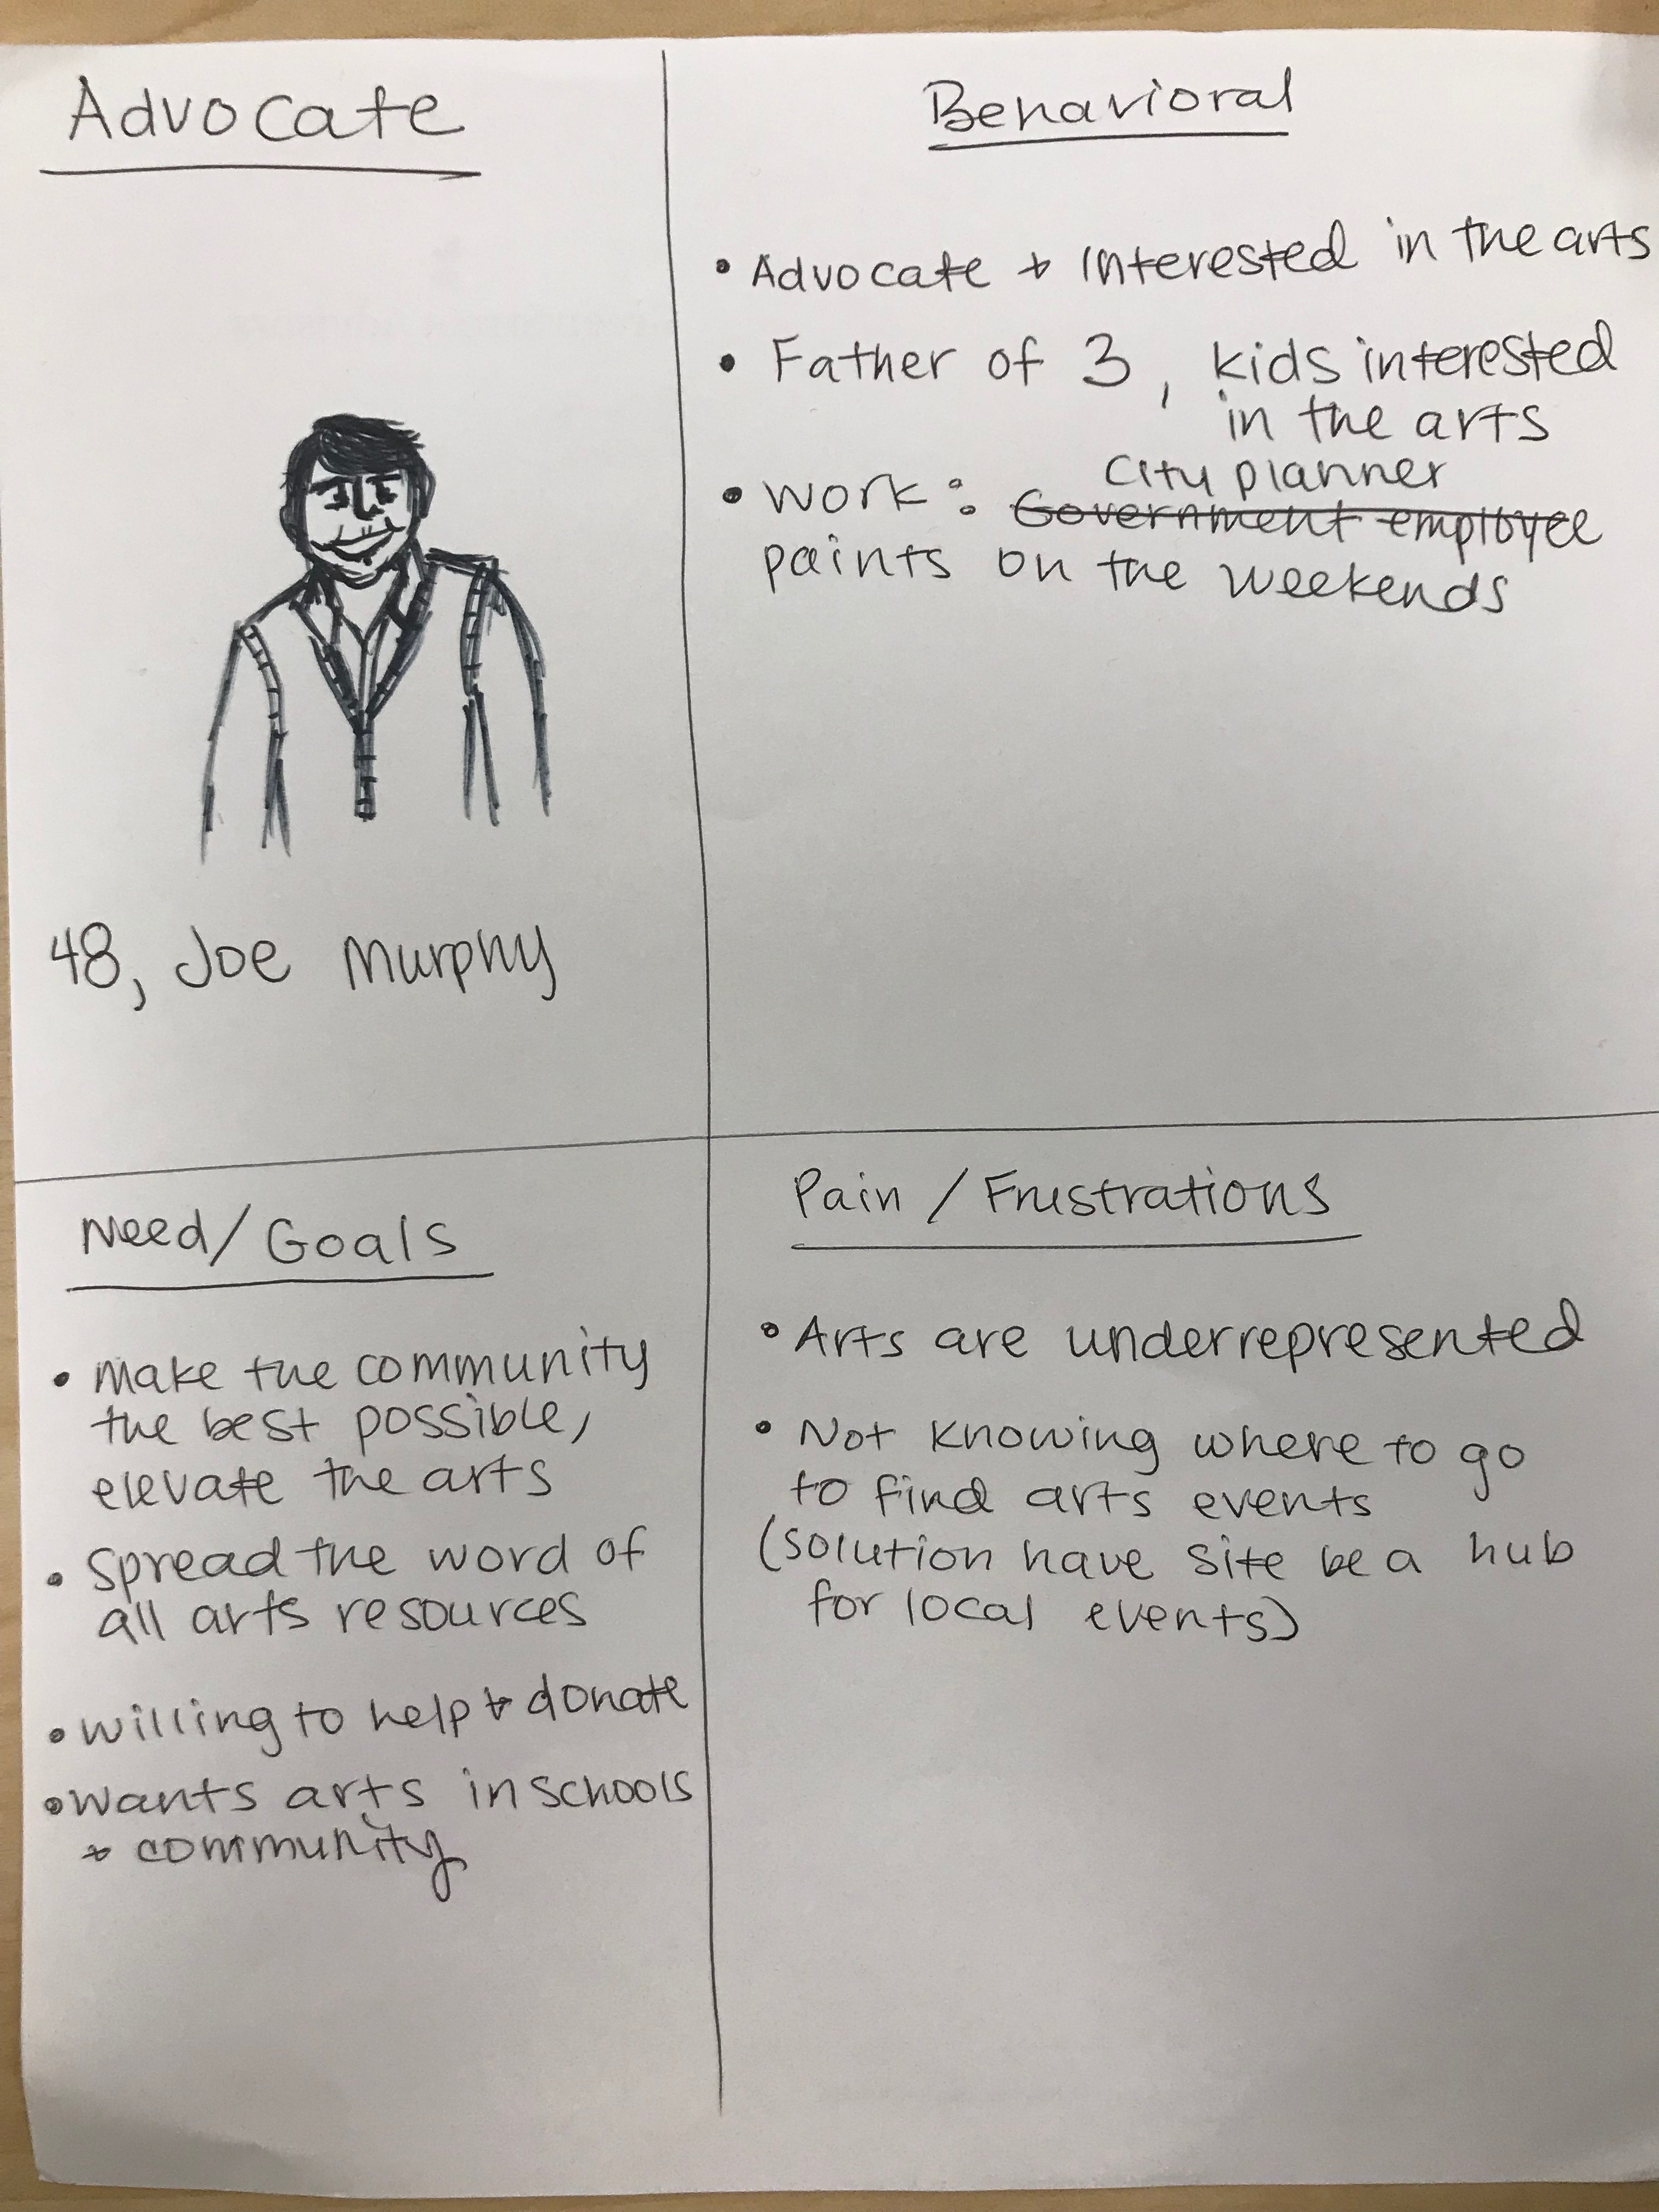 Advocate
48, Joe Murphy
Behavioral
• Advocate + Interested in the arts
• Father of 3, kids interested
in the arts
City planner
• Work: Government employee
paints on the weekends
Need/Goals
• Make the community
the best possible,
elevate the arts
• Spread the word of
all arts resources
• willing to help + donate
• wants arts in schools
+ community
Pain / Frustrations
• Arts are underrepresented
• Not knowing where to go
to find arts events
(solution have site be a hub
for local events)